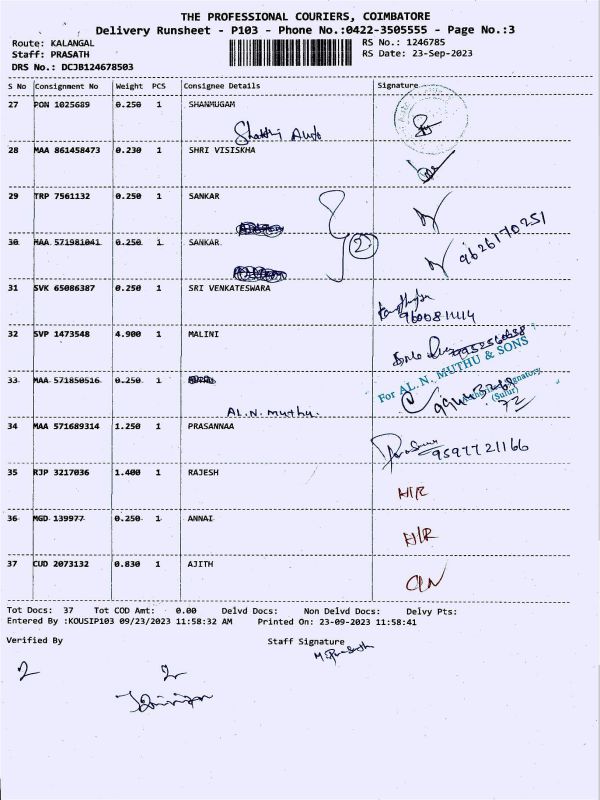 THE PROFESSIONAL COURIERS, COIMBATORE
Delivery Runsheet - P103 - Phone No.:0422-3505555 - Page No.:3
Route: KALANGAL RS No.: 1246785
Staff: PRASATH RS Date: 23-Sep-2023
DRS No.: DCJB124678503
S No Consignment No Weight PCS Consignee Details Signature
27 PON 1025689 0.250 1 SHANMUGAM
Shakthi Auto
28 MAA 861458473 0.230 1 SHRI VISISKHA
29 TRP 7561132 0.250 1 SANKAR
30 MAA 571981041 0.250 1 SANKAR 2 9626170251
31 SVK 65086387 0.250 1 SRI VENKATESWARA
9600811114
32 SVP 1473548 4.900 1 MALINI
For AL. N. MUTHU & SONS
33 MAA 571850516 0.250 1
(Sulur)
AL.N. Muthu. 72
34 MAA 571689314 1.250 1 PRASANNAA
9597721166
35 RJP 3217036 1.400 1 RAJESH
H/R
36 MGD 139977 0.250 1 ANNAI
H/R
37 CUD 2073132 0.830 1 AJITH
Tot Docs: 37 Tot COD Amt: 0.00 Delvd Docs: Non Delvd Docs: Delvy Pts:
Entered By :KOUSIP103 09/23/2023 11:58:32 AM Printed On: 23-09-2023 11:58:41
Verified By Staff Signature
M. Prasath
2 2